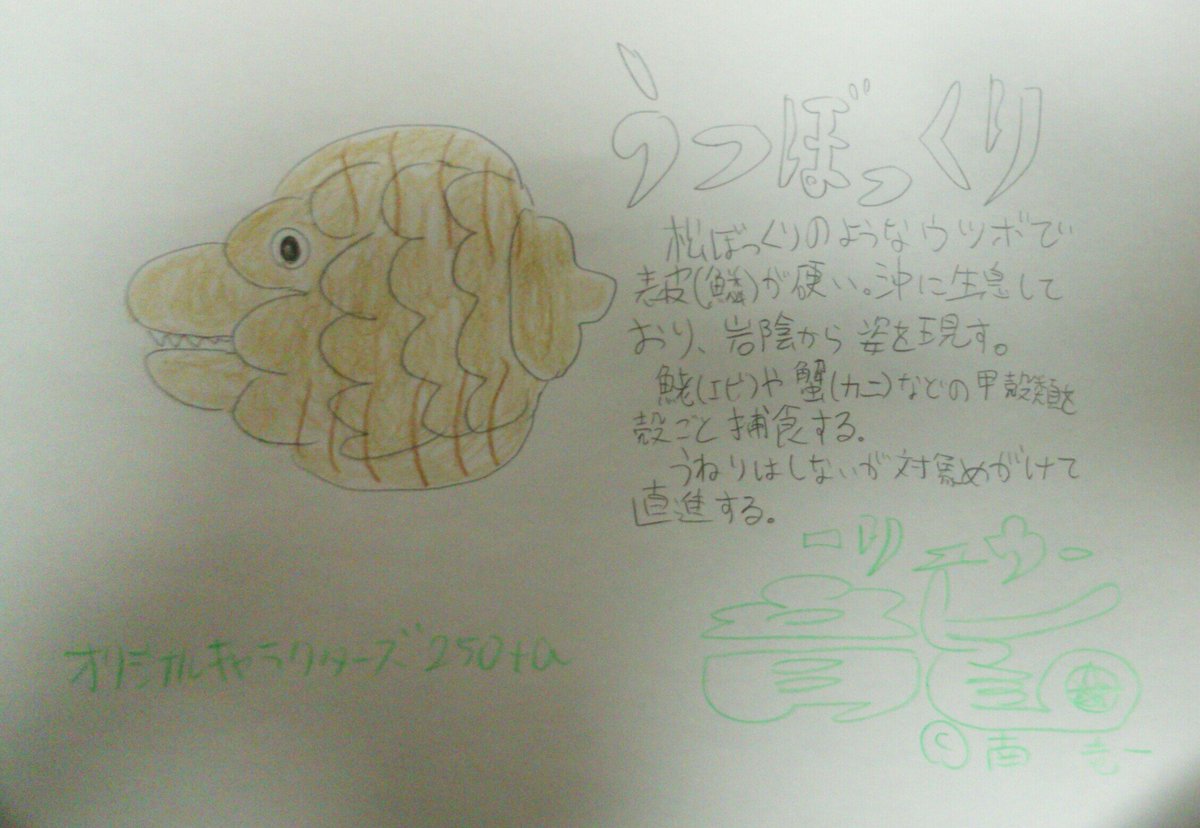 うつぼっくり
松ぼっくりのようなウツボで
表皮(鱗)が硬い。沖に生息して
おり、岩陰から姿を現す。
蝦(エビ)や蟹(カニ)などの甲殻類を
殻ごと捕食する。
うねりはしないが対象めがけて
直進する。
オリジナルキャラクターズ250+α
© 南